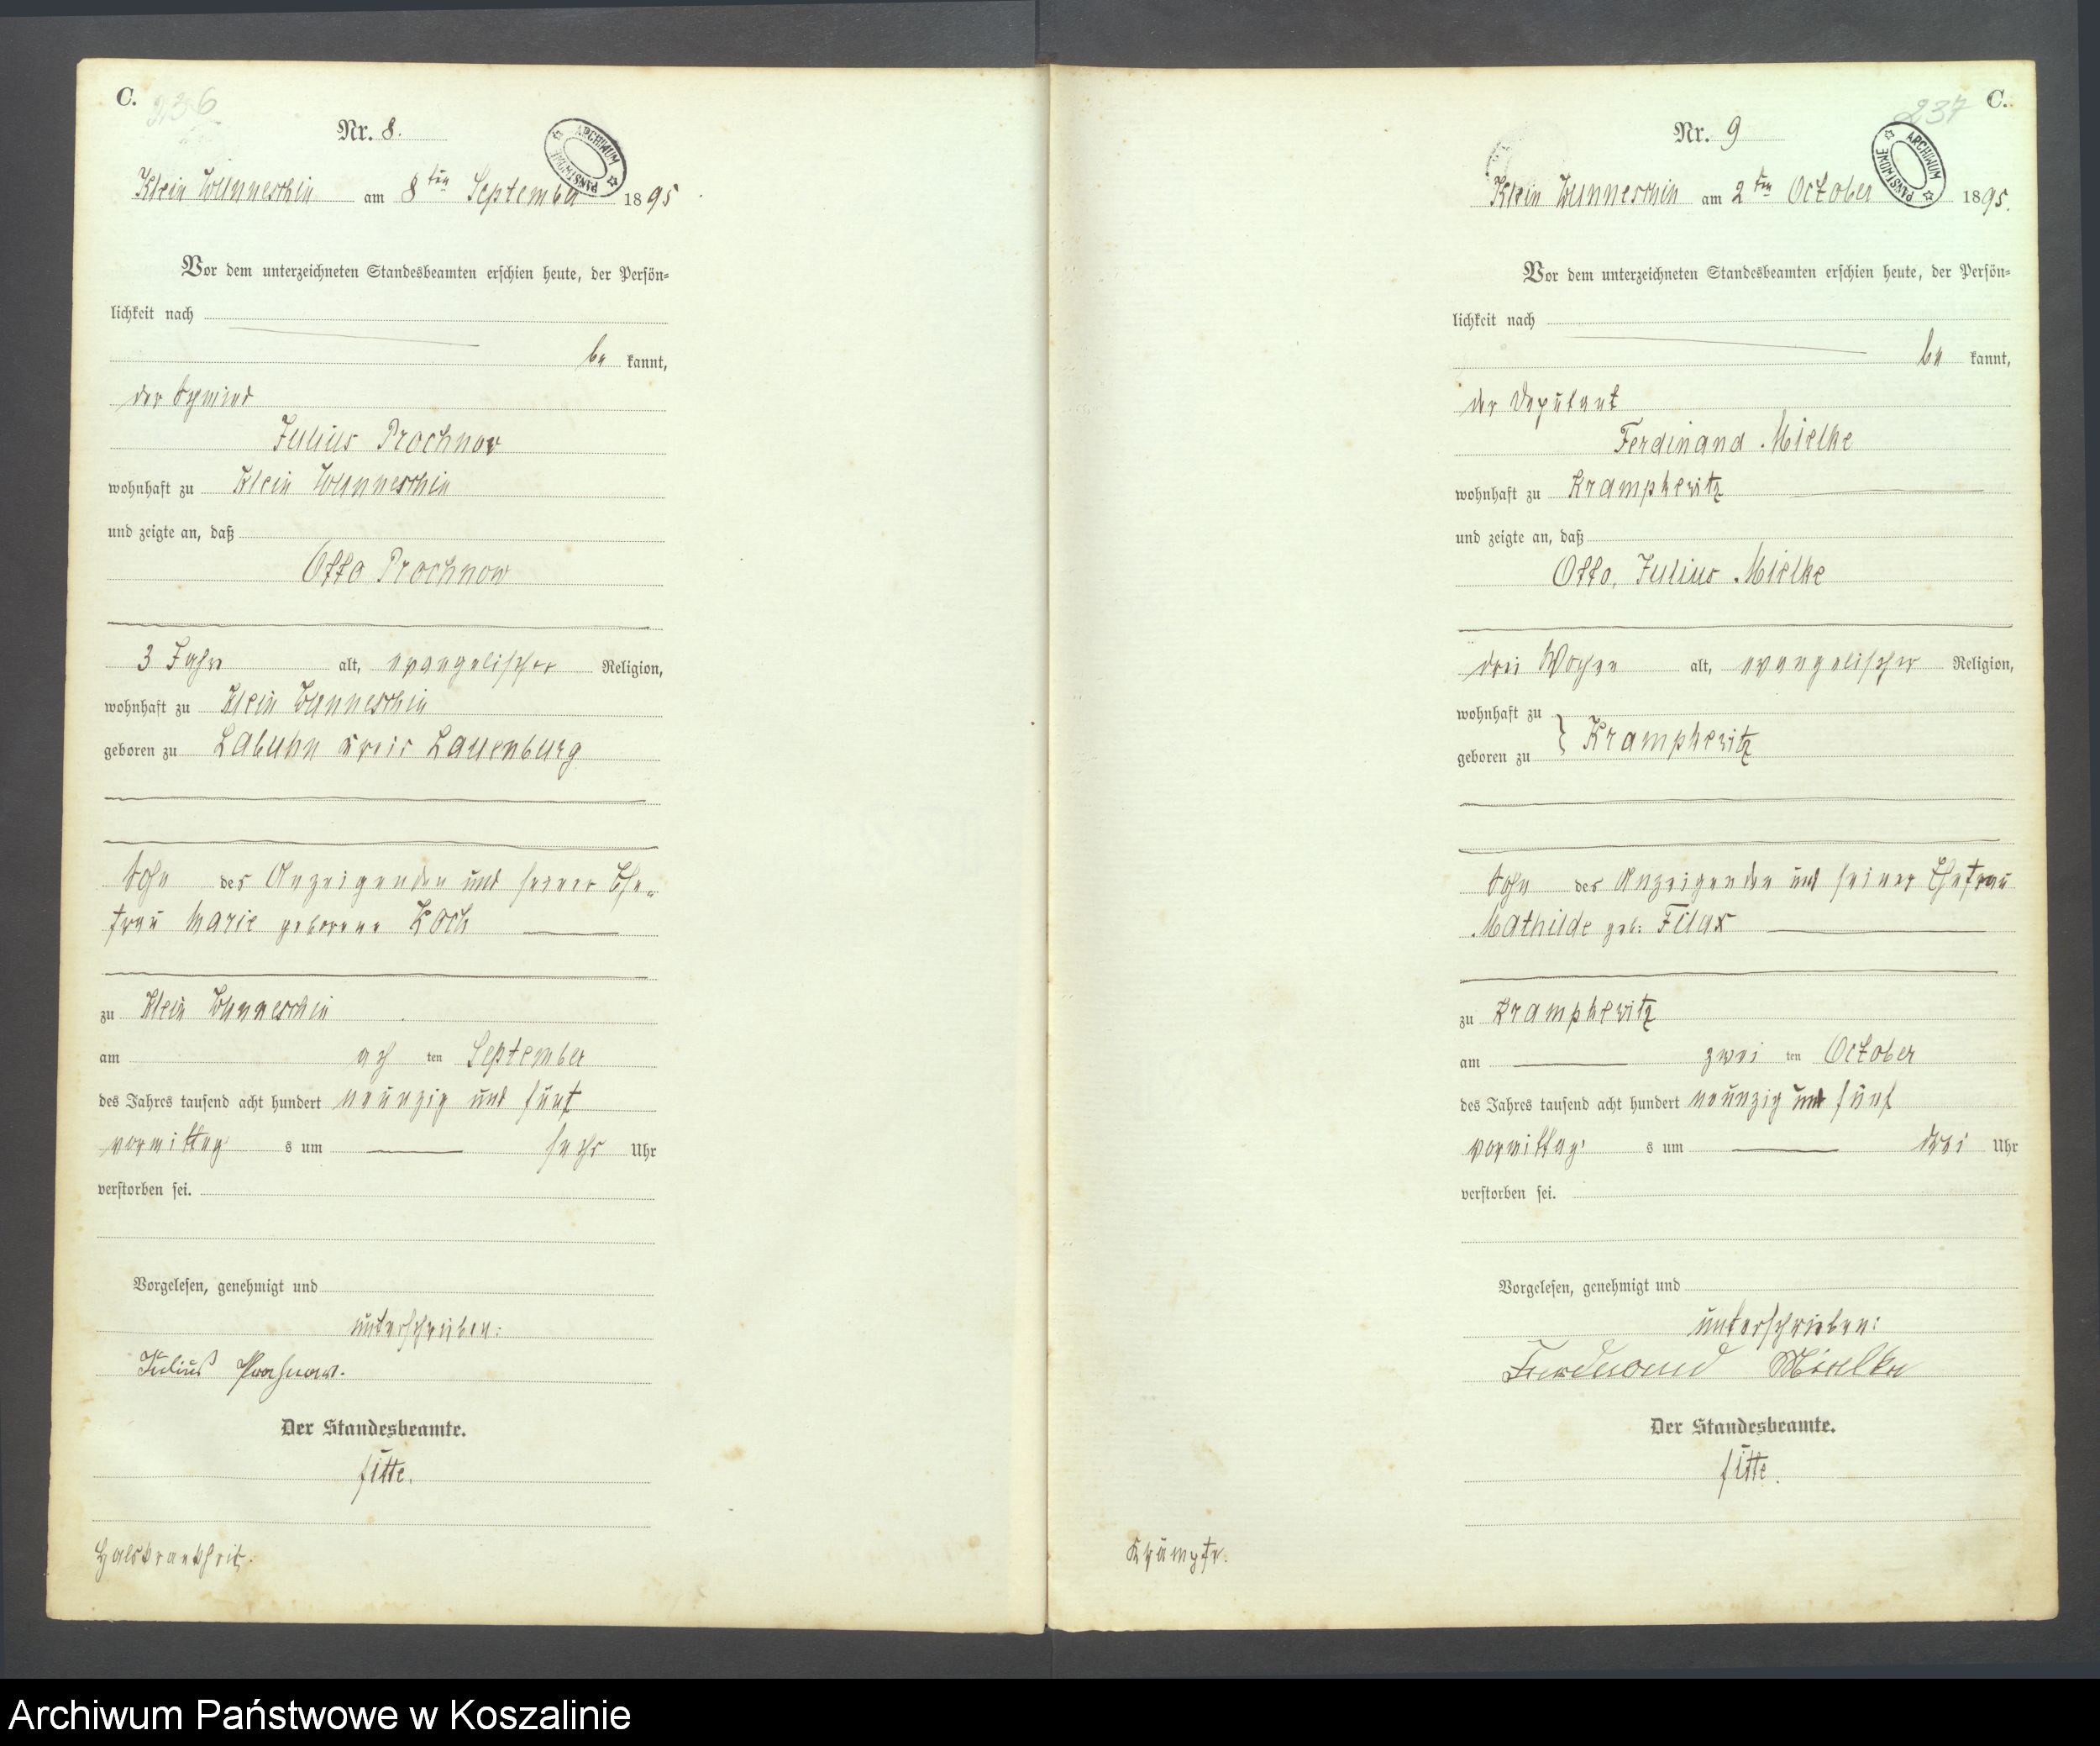 C.
236
Nr. 8.
ARCHIWUM PAŃSTWOWE
Klein Wunneschin am 8ten September 1895
Vor dem unterzeichneten Standesbeamten erschien heute, der Persön=
lichkeit nach
be kannt,
der Schmied
Julius Prochnow
wohnhaft zu Klein Wunneschin
und zeigte an, daß
Otto Prochnow
3 Jahre alt, evangelischer Religion,
wohnhaft zu Klein Wunneschin
geboren zu Labuhn Kreis Lauenburg
Sohn des Anzeigenden und seiner Ehe-
frau Marie geborene Koch
zu Klein Wunneschin
am ach ten September
des Jahres tausend acht hundert neunzig und fünf
vormittag s um sechs Uhr
verstorben sei.
Vorgelesen, genehmigt und
unterschrieben:
Julius Prochnow.
Der Standesbeamte.
Halskrankheit.
237
C.
Nr. 9
ARCHIWUM PAŃSTWOWE
Klein Wunneschin am 2ten October 1895.
Vor dem unterzeichneten Standesbeamten erschien heute, der Persön=
lichkeit nach
be kannt,
der Deputant
Ferdinand Mielke
wohnhaft zu Krampkewitz
und zeigte an, daß
Otto, Julius Mielke
drei Wochen alt, evangelischer Religion,
wohnhaft zu
geboren zu } Krampkewitz
Sohn des Anzeigenden und seiner Ehefrau
Mathilde geb: Filax
zu Krampkewitz
am zwei ten October
des Jahres tausend acht hundert neunzig und fünf
vormittag s um drei Uhr
verstorben sei.
Vorgelesen, genehmigt und
unterschrieben:
Ferdinand Mielke
Der Standesbeamte.
Krämpfe.
Archiwum Państwowe w Koszalinie